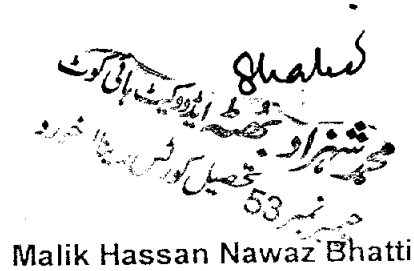 Shahid
محمد شہزاد بھٹہ ایڈووکیٹ ہائی کورٹ
تحصیل کورٹس
نمبر 53
Malik Hassan Nawaz Bhatti